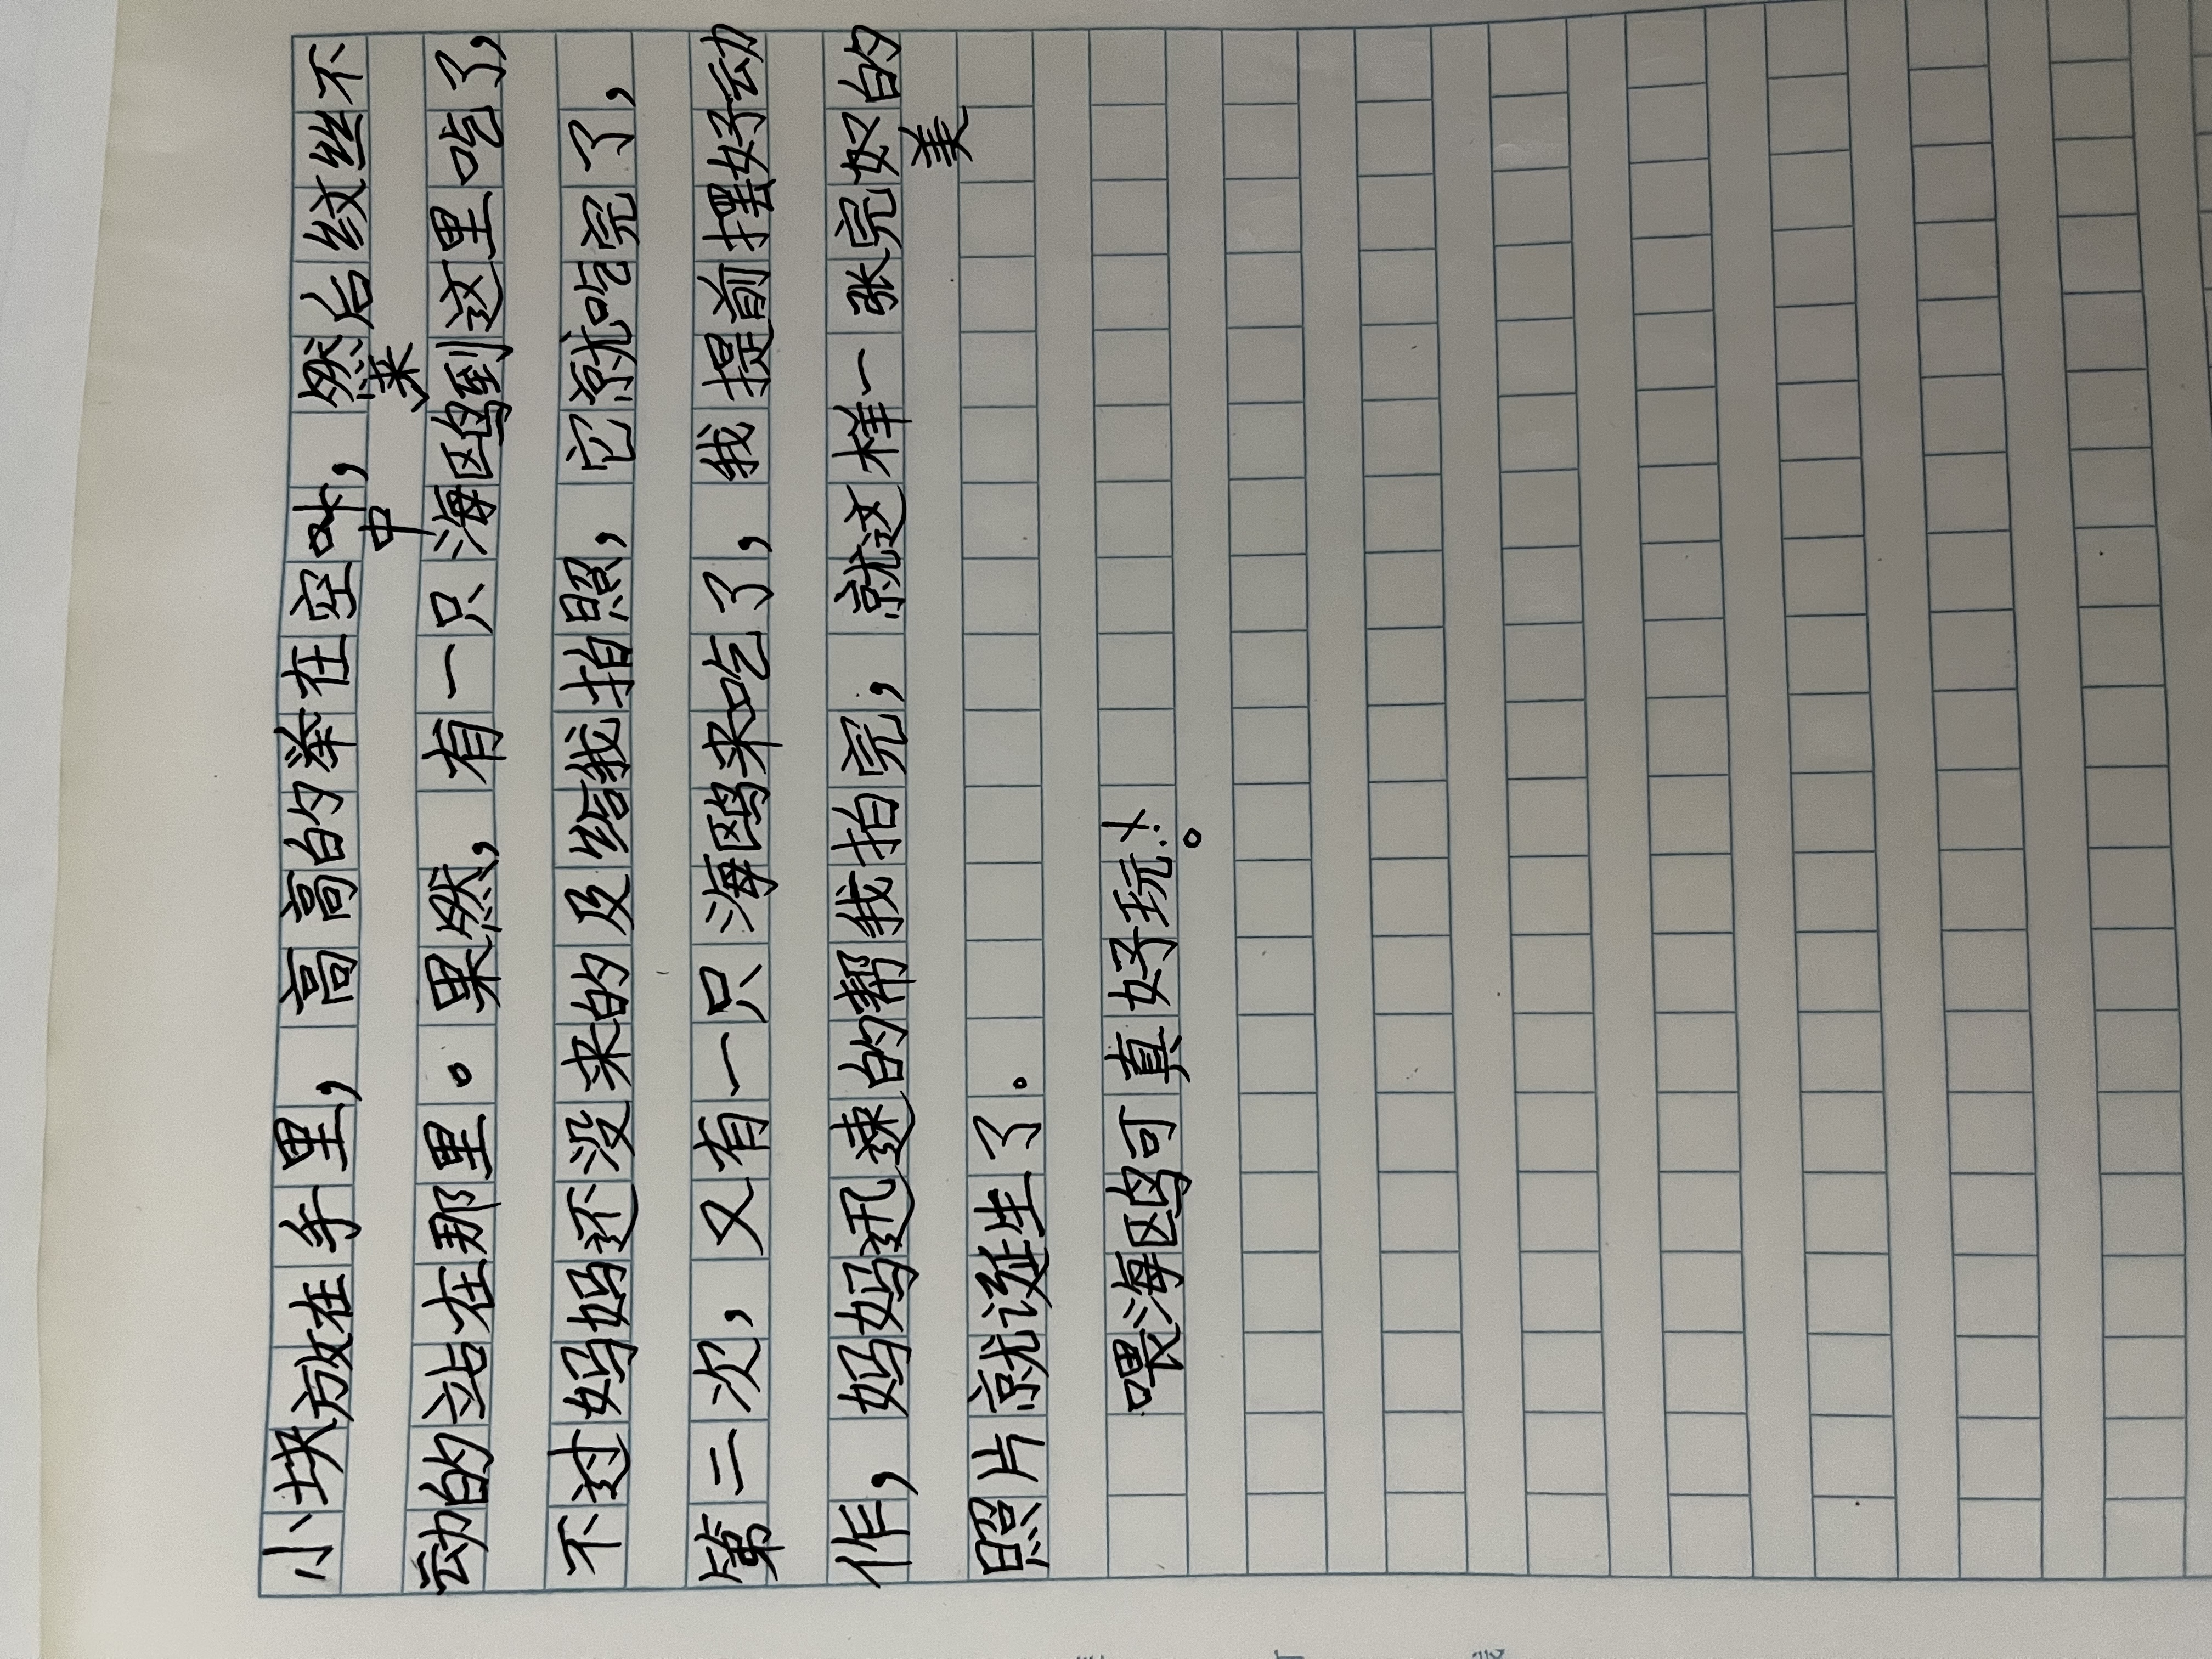 小块放在手里，高高的举在空叶，然后纹丝不
中 来
动的站在那里。果然，有一只海鸥到这里吃了，
不过妈妈还没来的及给我拍照，它就吃完了，
第二次，又有一只海鸥来吃了，我提前摆好动
作，妈妈迅速的帮我拍完，就这样一张完奴的
美
照片就诞生了。
喂海鸥可真好玩！。